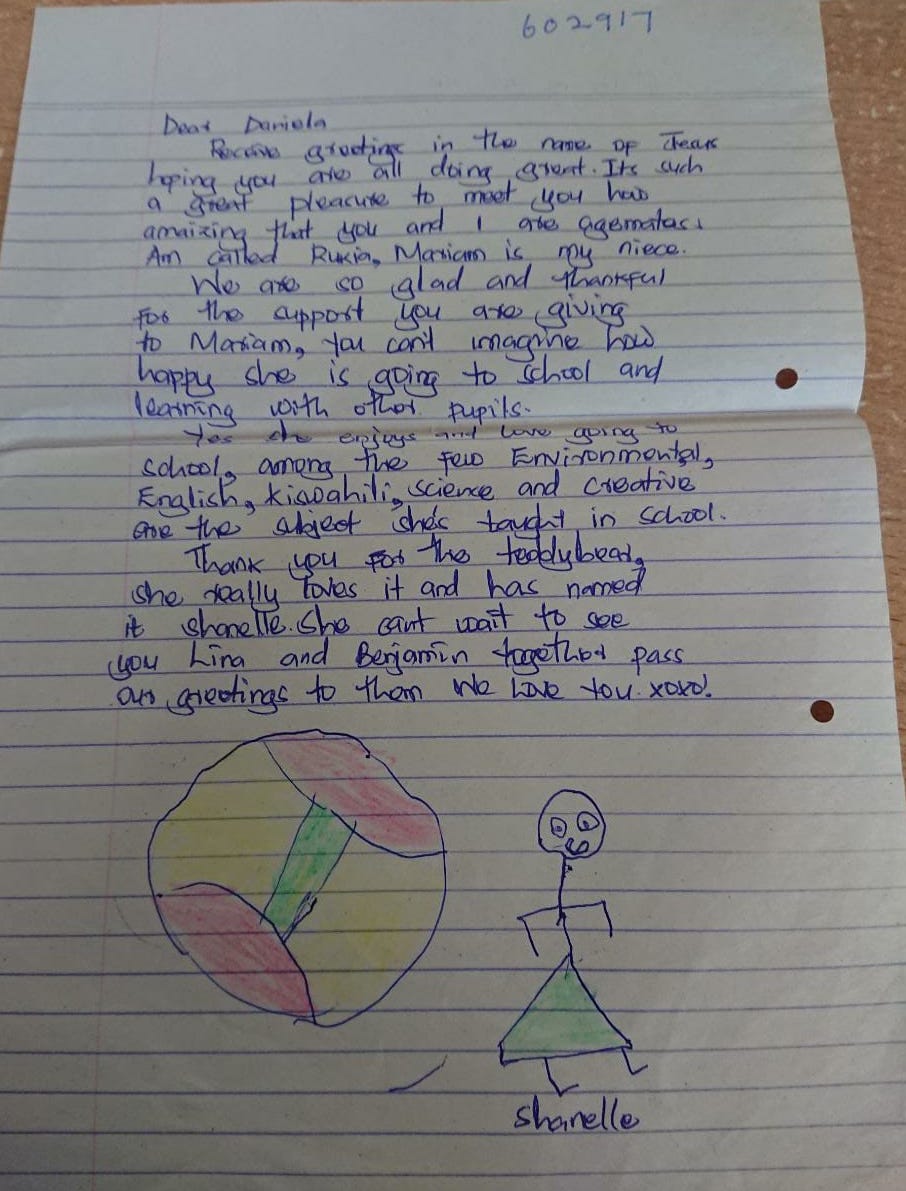 602917
Dear Daniela
Receive greetings in the name of Jesus
hoping you are all doing great. Its such
a great pleasure to meet you how
amaizing that you and I are agemates.
Am called Rukia, Mariam is my niece.
We are so glad and thankful
for the support you are giving
to Mariam, you can't imagine how
happy she is going to school and
learning with other pupils.
Yes she enjoys and love going to
school, among the few Environmental,
English, kiswahili, science and creative
are the subject she's taught in school.
Thank you for the teddybear,
she really loves it and has named
it shanelle. She cant wait to see
you Lina and Benjamin together pass
our greetings to them We Love You. xoxo!
shanelle